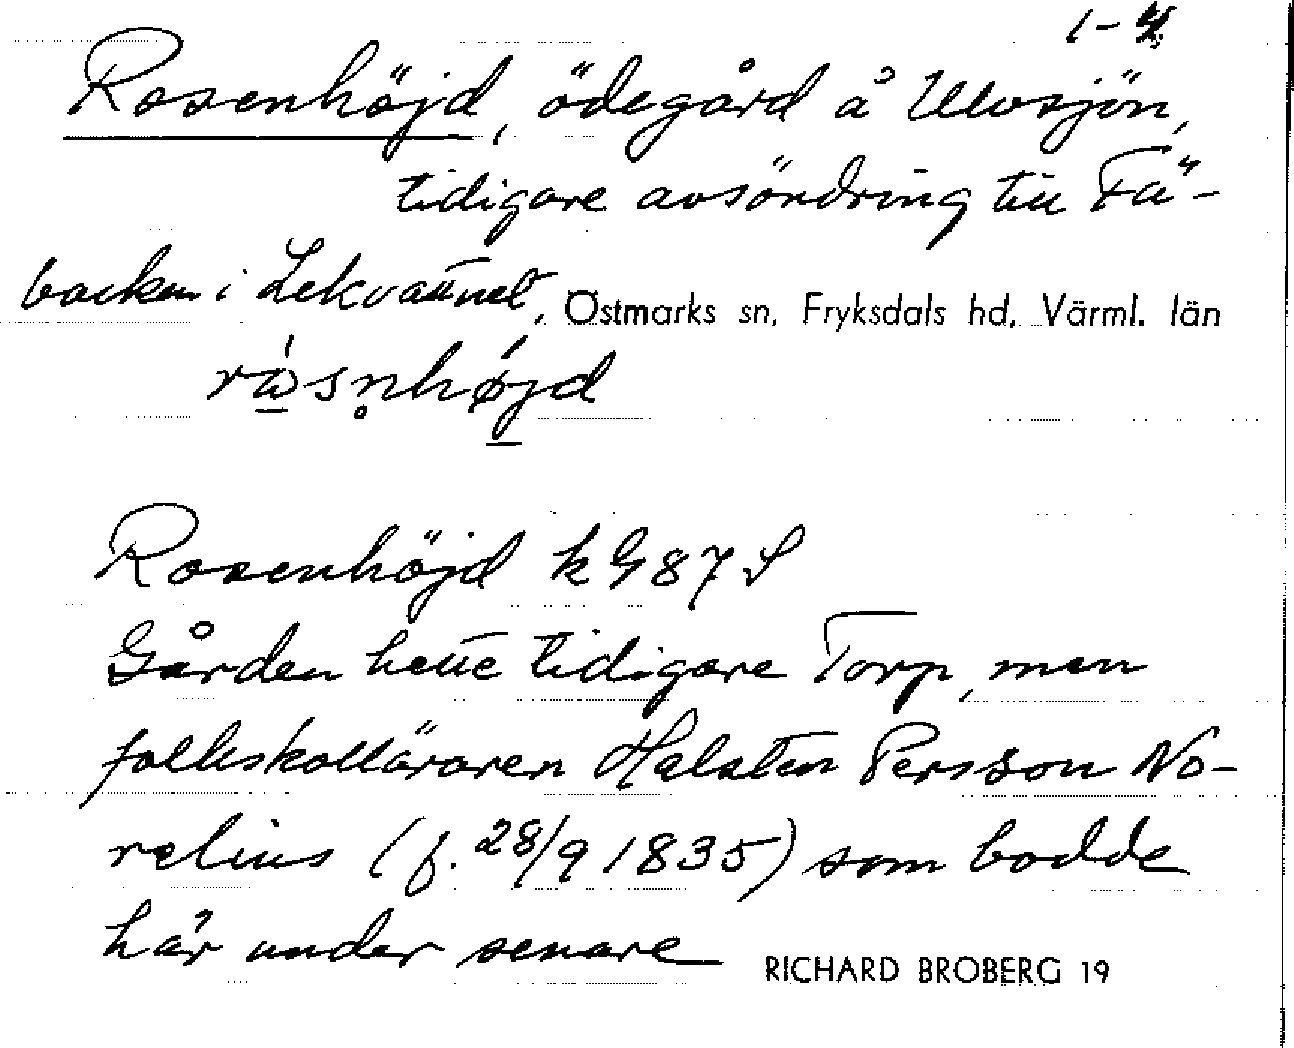 1-4
Rosenhöjd, ödegård å Ulvsjön,
tidigare avsöndring till Fä-
backen i Lekvattnet, Östmarks sn, Fryksdals hd, Värml. län
Rosenhöjd k G 87 S
Gården hette tidigare Torp, men
folkskolläraren Halsten Persson No-
relius (f. 28/9 1835) som bodde
här under senare
RICHARD BROBERG 19